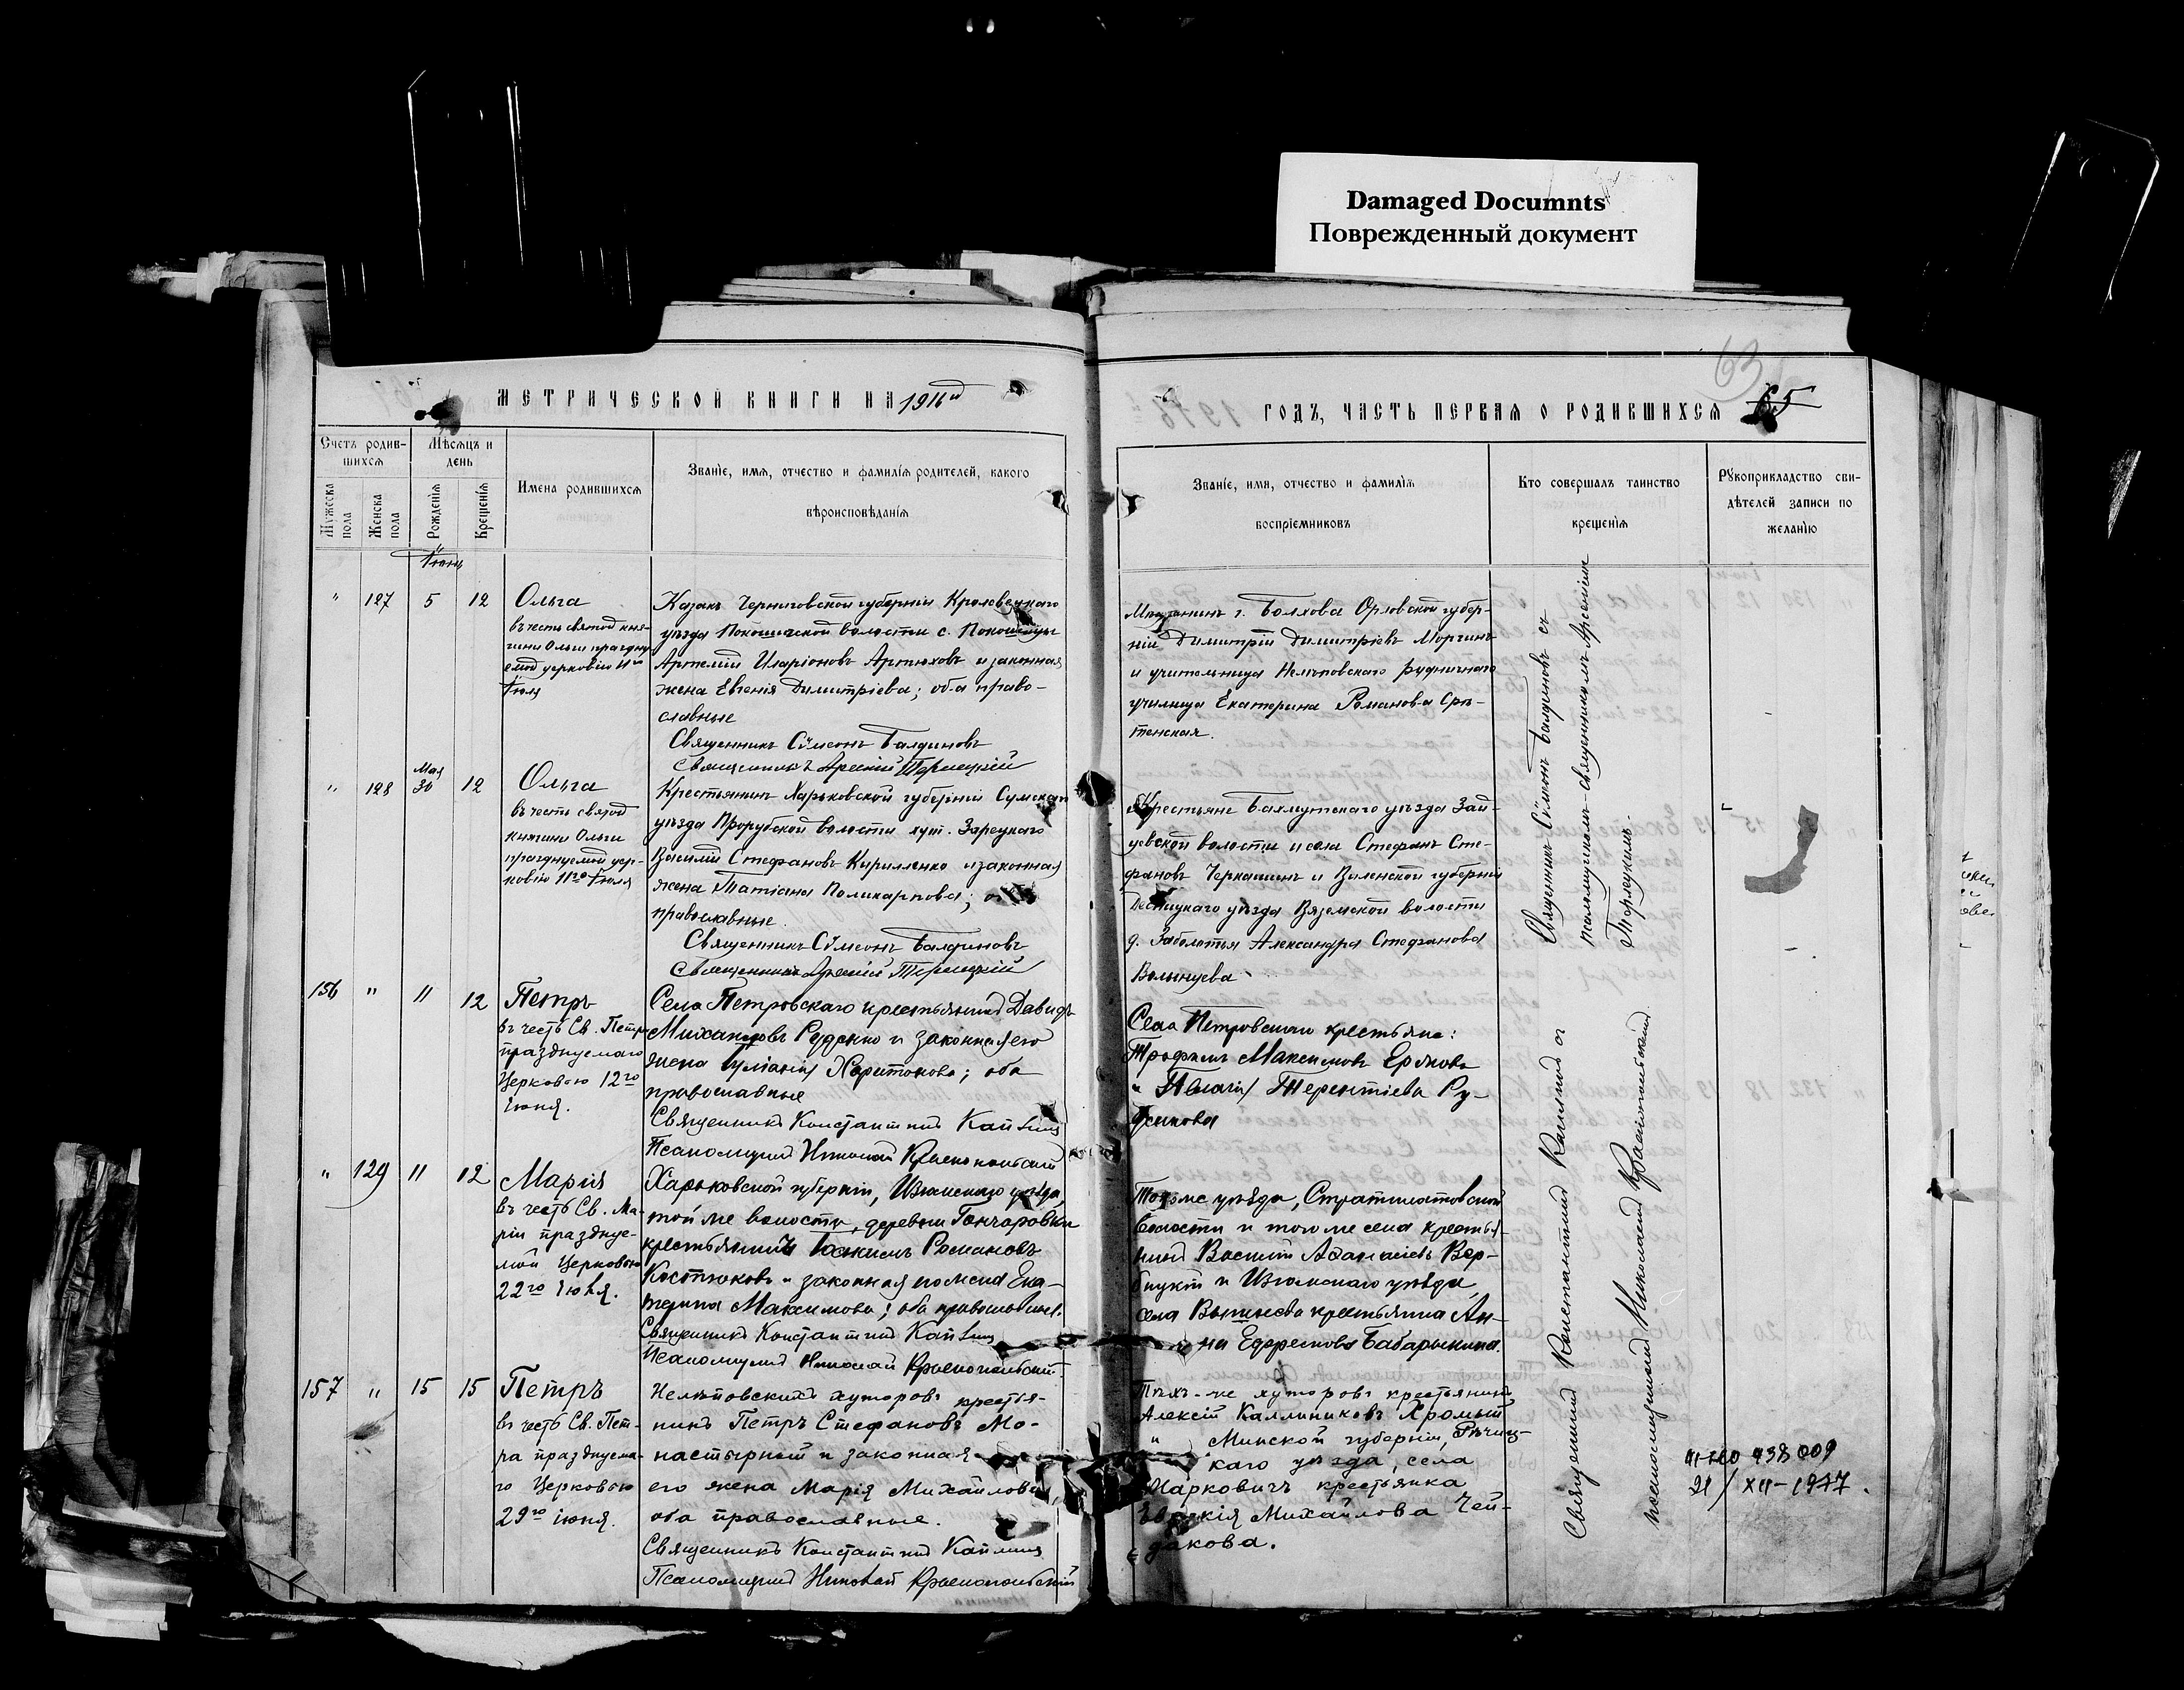 Damaged Documnts
Поврежденный документ
63
МЕТРИЧЕСКОЙ КНИГИ НА 1916й
ГОДЪ, ЧАСТЬ ПЕРВАЯ О РОДИВШИХСЯ
65
Счетъ родив-
шихся
Мѣсяцъ и
день
Мужеска
пола
Женска
пола
Рожденія
Крещенія
Имена родившихся
Званіе, имя, отчество и фамилія родителей, какого
вѣроисповѣданія
Званіе, имя, отчество и фамилія
воспріемниковъ
Кто совершалъ таинство
крещенія
Рукоприкладство сви-
дѣтелей записи по
желанію
Іюнь
" 127 5 12
Ольга
въ честь святой кня-
гини Ольги праздну
емой церковію 11го
Іюля
Казакъ Черниговской губерніи Кролевецкаго
уѣзда Покошичской волости с. Покошичи
Артемій Иларіоновъ Артюховъ и законная
жена Евгенія Димитріева; оба право-
славные
Священникъ Сѵмеонъ Балдиновъ
Священникъ Арсеній Терлецкій
Мѣщанинъ г. Болхова Орловской губер-
ніи Димитрій Димитріевъ Моргинъ
и учительница Нелѣповскаго рудничнаго
училища Екатерина Романова Срѣ-
тенская.
" 128 Мая 30 12
Ольга
въ честь святой
княгини Ольги
празднуемой цер-
ковію 11го Іюля
Крестьянинъ Харьковской губерніи Сумскаго
уѣзда Прорубской волости хут. Зарецкаго
Василій Стефановъ Кириленко и законная
жена Татіана Поликарпова; оба
православные.
Священникъ Сѵмеонъ Балдиновъ
Священникъ Арсеній Терлецкій
Крестьяне Бахмутскаго уѣзда Зай-
цевской волости и села Стефанъ Сте-
фановъ Черкашинъ и Виленской губерніи
уѣзда Вяземской волости
д. Заболотья Александра Стефанова
Волынцева
Священникъ Сѵмеонъ Балдиновъ съ
псаломщикомъ-священникомъ Арсеніемъ
Терлецкимъ.
156 " 11 12
Петръ
въ честь Св. Петра
празднуемаго
Церковью 12го
Іюня.
Села Петровскаго крестьянинъ Давидъ
Михайловъ Руденко и законная его
жена Іуліанія Харитонова; оба
православные
Священникъ Константинъ Каплинъ
Псаломщикъ Николай Краснопольскій
Села Петровскаго крестьяне:
Трофимъ Максимовъ
" Пелагія Терентіева Ру-
" 129 11 12
Марія
въ честь Св. Ма-
ріи празднуе-
мой Церковью
22го Іюля.
Харьковской губерніи, Изюмскаго уѣзда,
той же волости, деревни Гончаровки
крестьянинъ Іоакимъ Романовъ
Костюковъ и законная его жена Ека-
терина Максимова; оба православные.
Священникъ Константинъ Каплинъ
Псаломщикъ Николай Краснопольскій.
Того же уѣзда,
волости и того же села крестья-
нинъ Василій Аѳанасіевъ Вер-
бицкій и Изюмскаго уѣзда,
села крестьянка Ан-
на Ефремова Бабарыкина.
157 " 15 15
Петръ
въ честь Св. Пет-
ра празднуема-
го Церковью
29го іюня.
Нелѣповскихъ хуторовъ крестья-
нинъ Петръ Стефановъ Мо-
настырный и законная
его жена Марія Михайлова,
оба православные.
Священникъ Константинъ Каплинъ
Псаломщикъ Николай Краснопольскій
Тѣхъ-же хуторовъ крестьянинъ
Алексій Каллиниковъ Хромый
" Минской губерніи, Рѣчиц-
каго уѣзда, села
Марковичъ крестьянка
Михайлова Чей-
дакова.
Священникъ Константинъ Каплинъ съ
псаломщикомъ Николаемъ Краснопольскимъ
938 009
21/XII-1977.